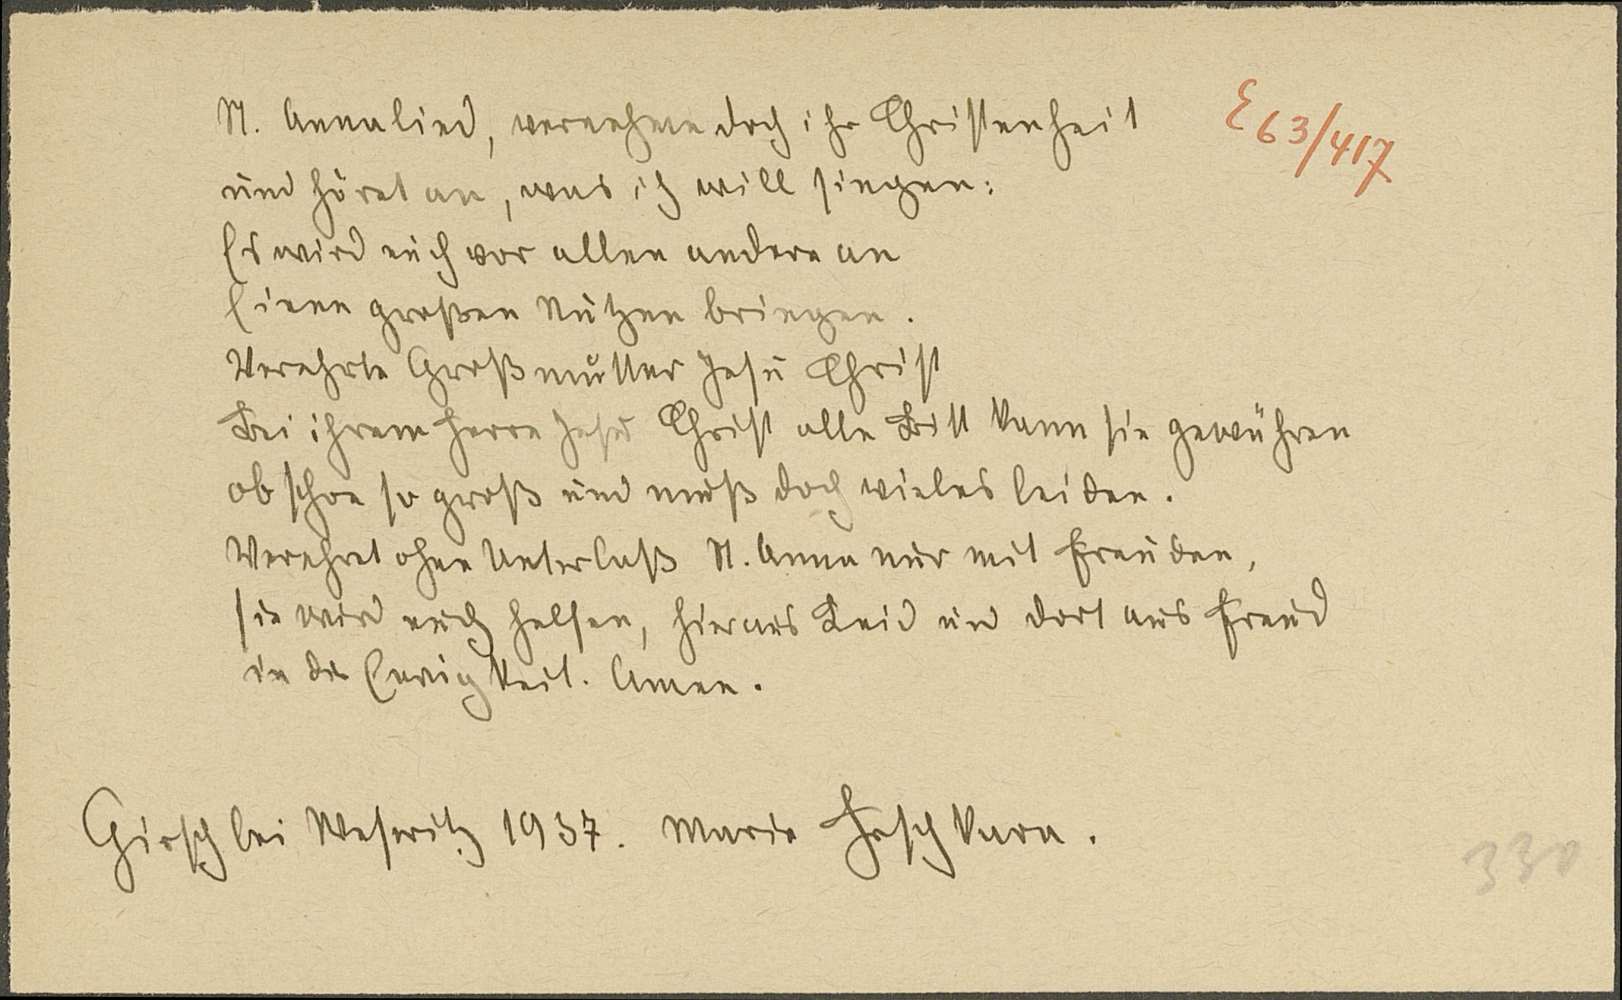 St. Annalied, vernehme doch ihr Christenheit
E 63/417
und höret an, was ich will singen:
Es wird euch vor allen andern an
Einen großen Nutzen bringen.
Verehrte Großmutter Jesu Christ
Bei ihrem Herrn Jesus Christ alle Bitt kann sie gewähren
ob schon so groß und muß doch vieles leiden.
Verehret ohne Unterlaß St. Anna nur mit Freuden,
sie wird euch helfen, hier aus Leid und dort aus Freud
in der Ewigkeit. Amen.
Girsch bei Weseritz 1937. Marie Haschkara.
330